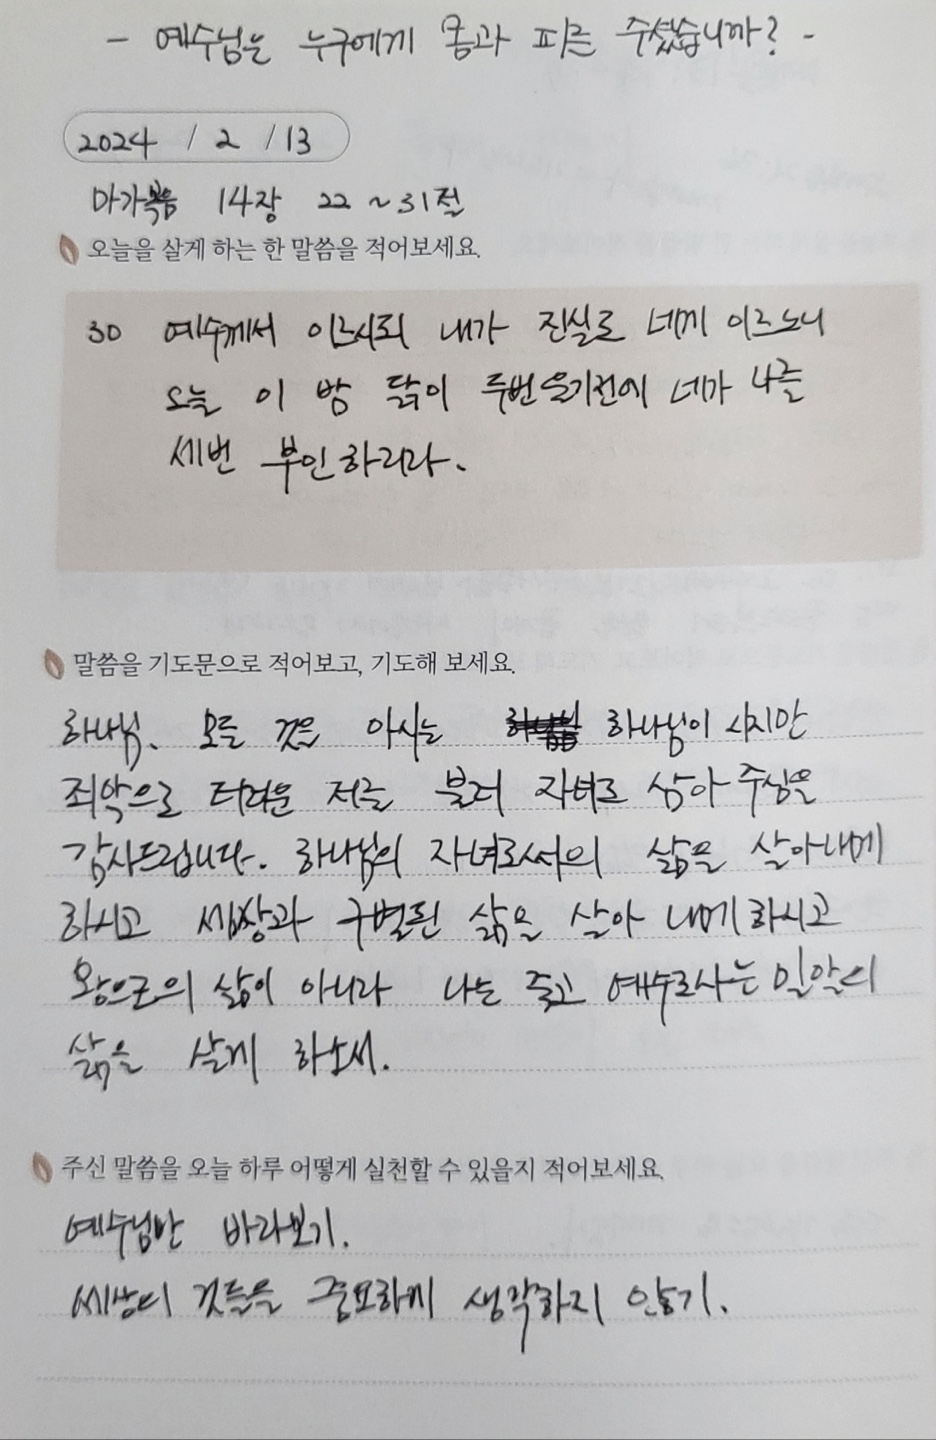 - 예수님은 누구에게 몸과 피를 주셨습니까? -
2024 / 2 / 13
마가복음 14장 22 ~ 31절
오늘을 살게 하는 한 말씀을 적어보세요.
30 예수께서 이르시되 내가 진실로 네게 이르노니
오늘 이 밤 닭이 두번 울기전에 네가 나를
세번 부인하리라.
말씀을 기도문으로 적어보고, 기도해 보세요.
하나님. 모든 것을 아시는 하나님이시지만
죄악으로 더러운 저를 불러 자녀로 삼아 주심을
감사드립니다. 하나님의 자녀로써의 삶을 살아내게
하시고 세상과 구별된 삶을 살아 내게 하시고
왕으로의 삶이 아니라 나는 죽고 예수로사는 밀알의
삶을 살게 하소서.
주신 말씀을 오늘 하루 어떻게 실천할 수 있을지 적어보세요.
예수님만 바라보기.
세상의 것들을 중요하게 생각하지 않기.